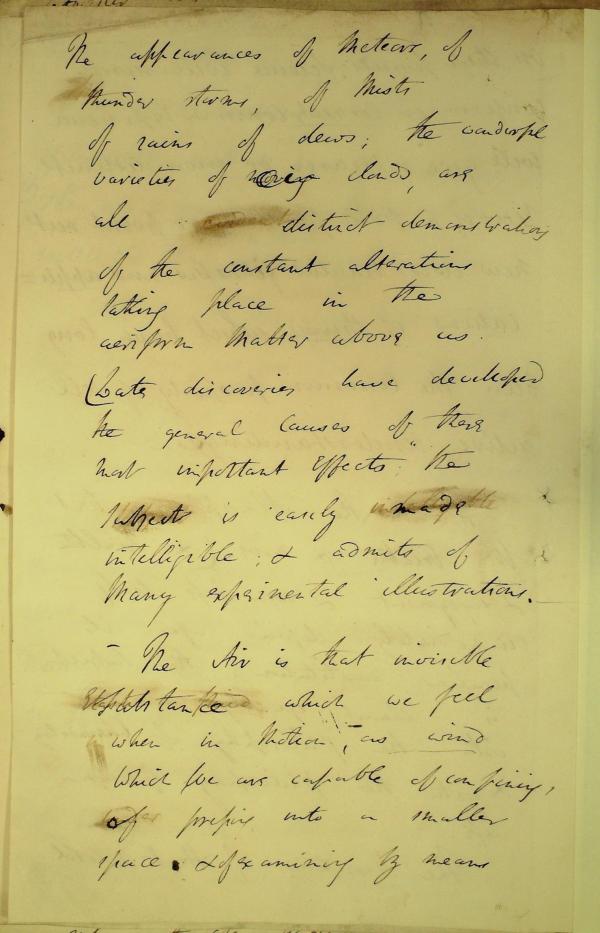 The appearances of Meteors, of
thunder storms, of Mists
of rains of dews; the wonderful
varieties of moving clouds, are
all distinct demonstrations
of the constant alterations
taking place in the
aeriform Matter above us.
(Late discoveries have developed
the general Causes of these
most important Effects; the
subject is easily made
intelligible; & admits of
Many experimental illustrations.
– The Air is that invisible
substance which we feel
when in Motion, as wind
Which we are capable of confining,
of pressing into a smaller
space. & of examining by means